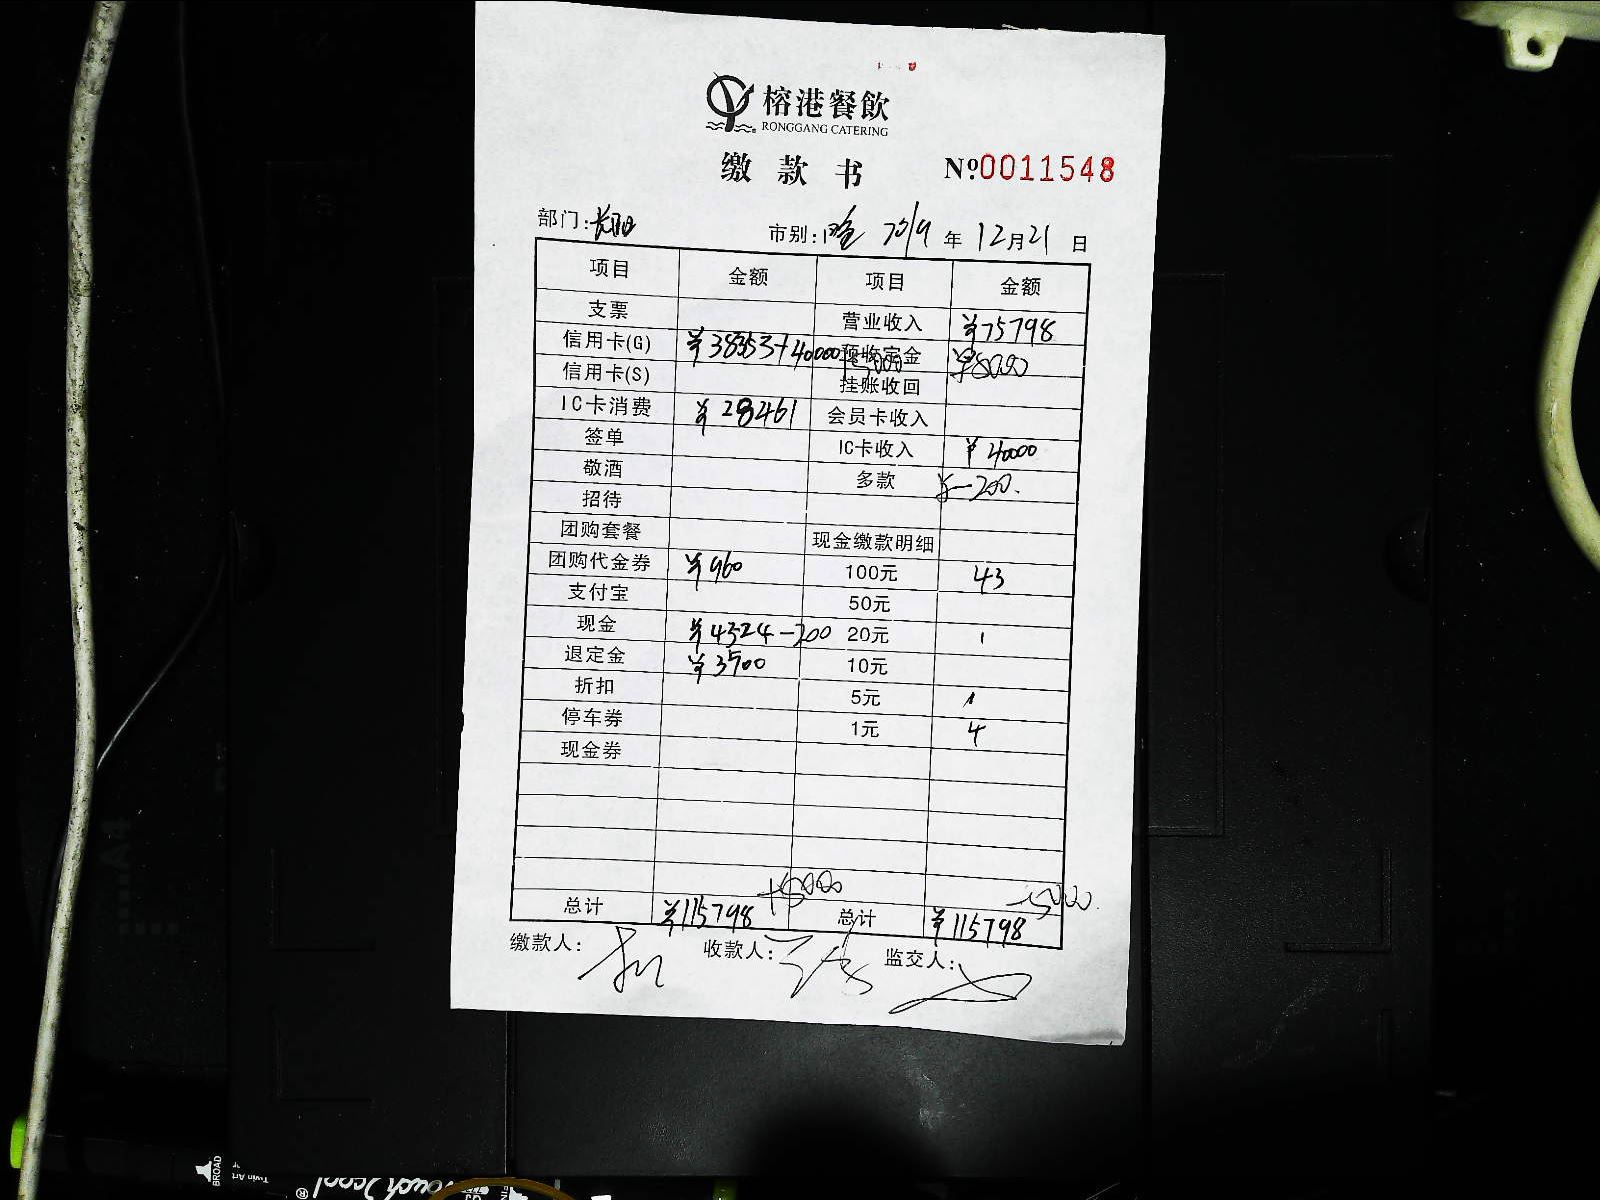 榕港餐飲
RONGGANG CATERING
缴款书 №0011548
部门: 市别: 2019年12月21日
项目 金额 项目 金额
支票 营业收入 ¥75798
信用卡(G) ¥38353+40000+5000 预收定金 ¥8000
信用卡(S) 挂账收回
IC卡消费 ¥28461 会员卡收入
签单 IC卡收入 ¥40000
敬酒 多款 ¥-200.
招待
团购套餐 现金缴款明细
团购代金券 ¥960 100元 43
支付宝 50元
现金 ¥4324-200 20元 1
退定金 ¥3700 10元
折扣 5元 1
停车券 1元 4
现金券
+5000
总计 ¥115798 总计 ¥115798
缴款人: 收款人: 监交人:
BROAD